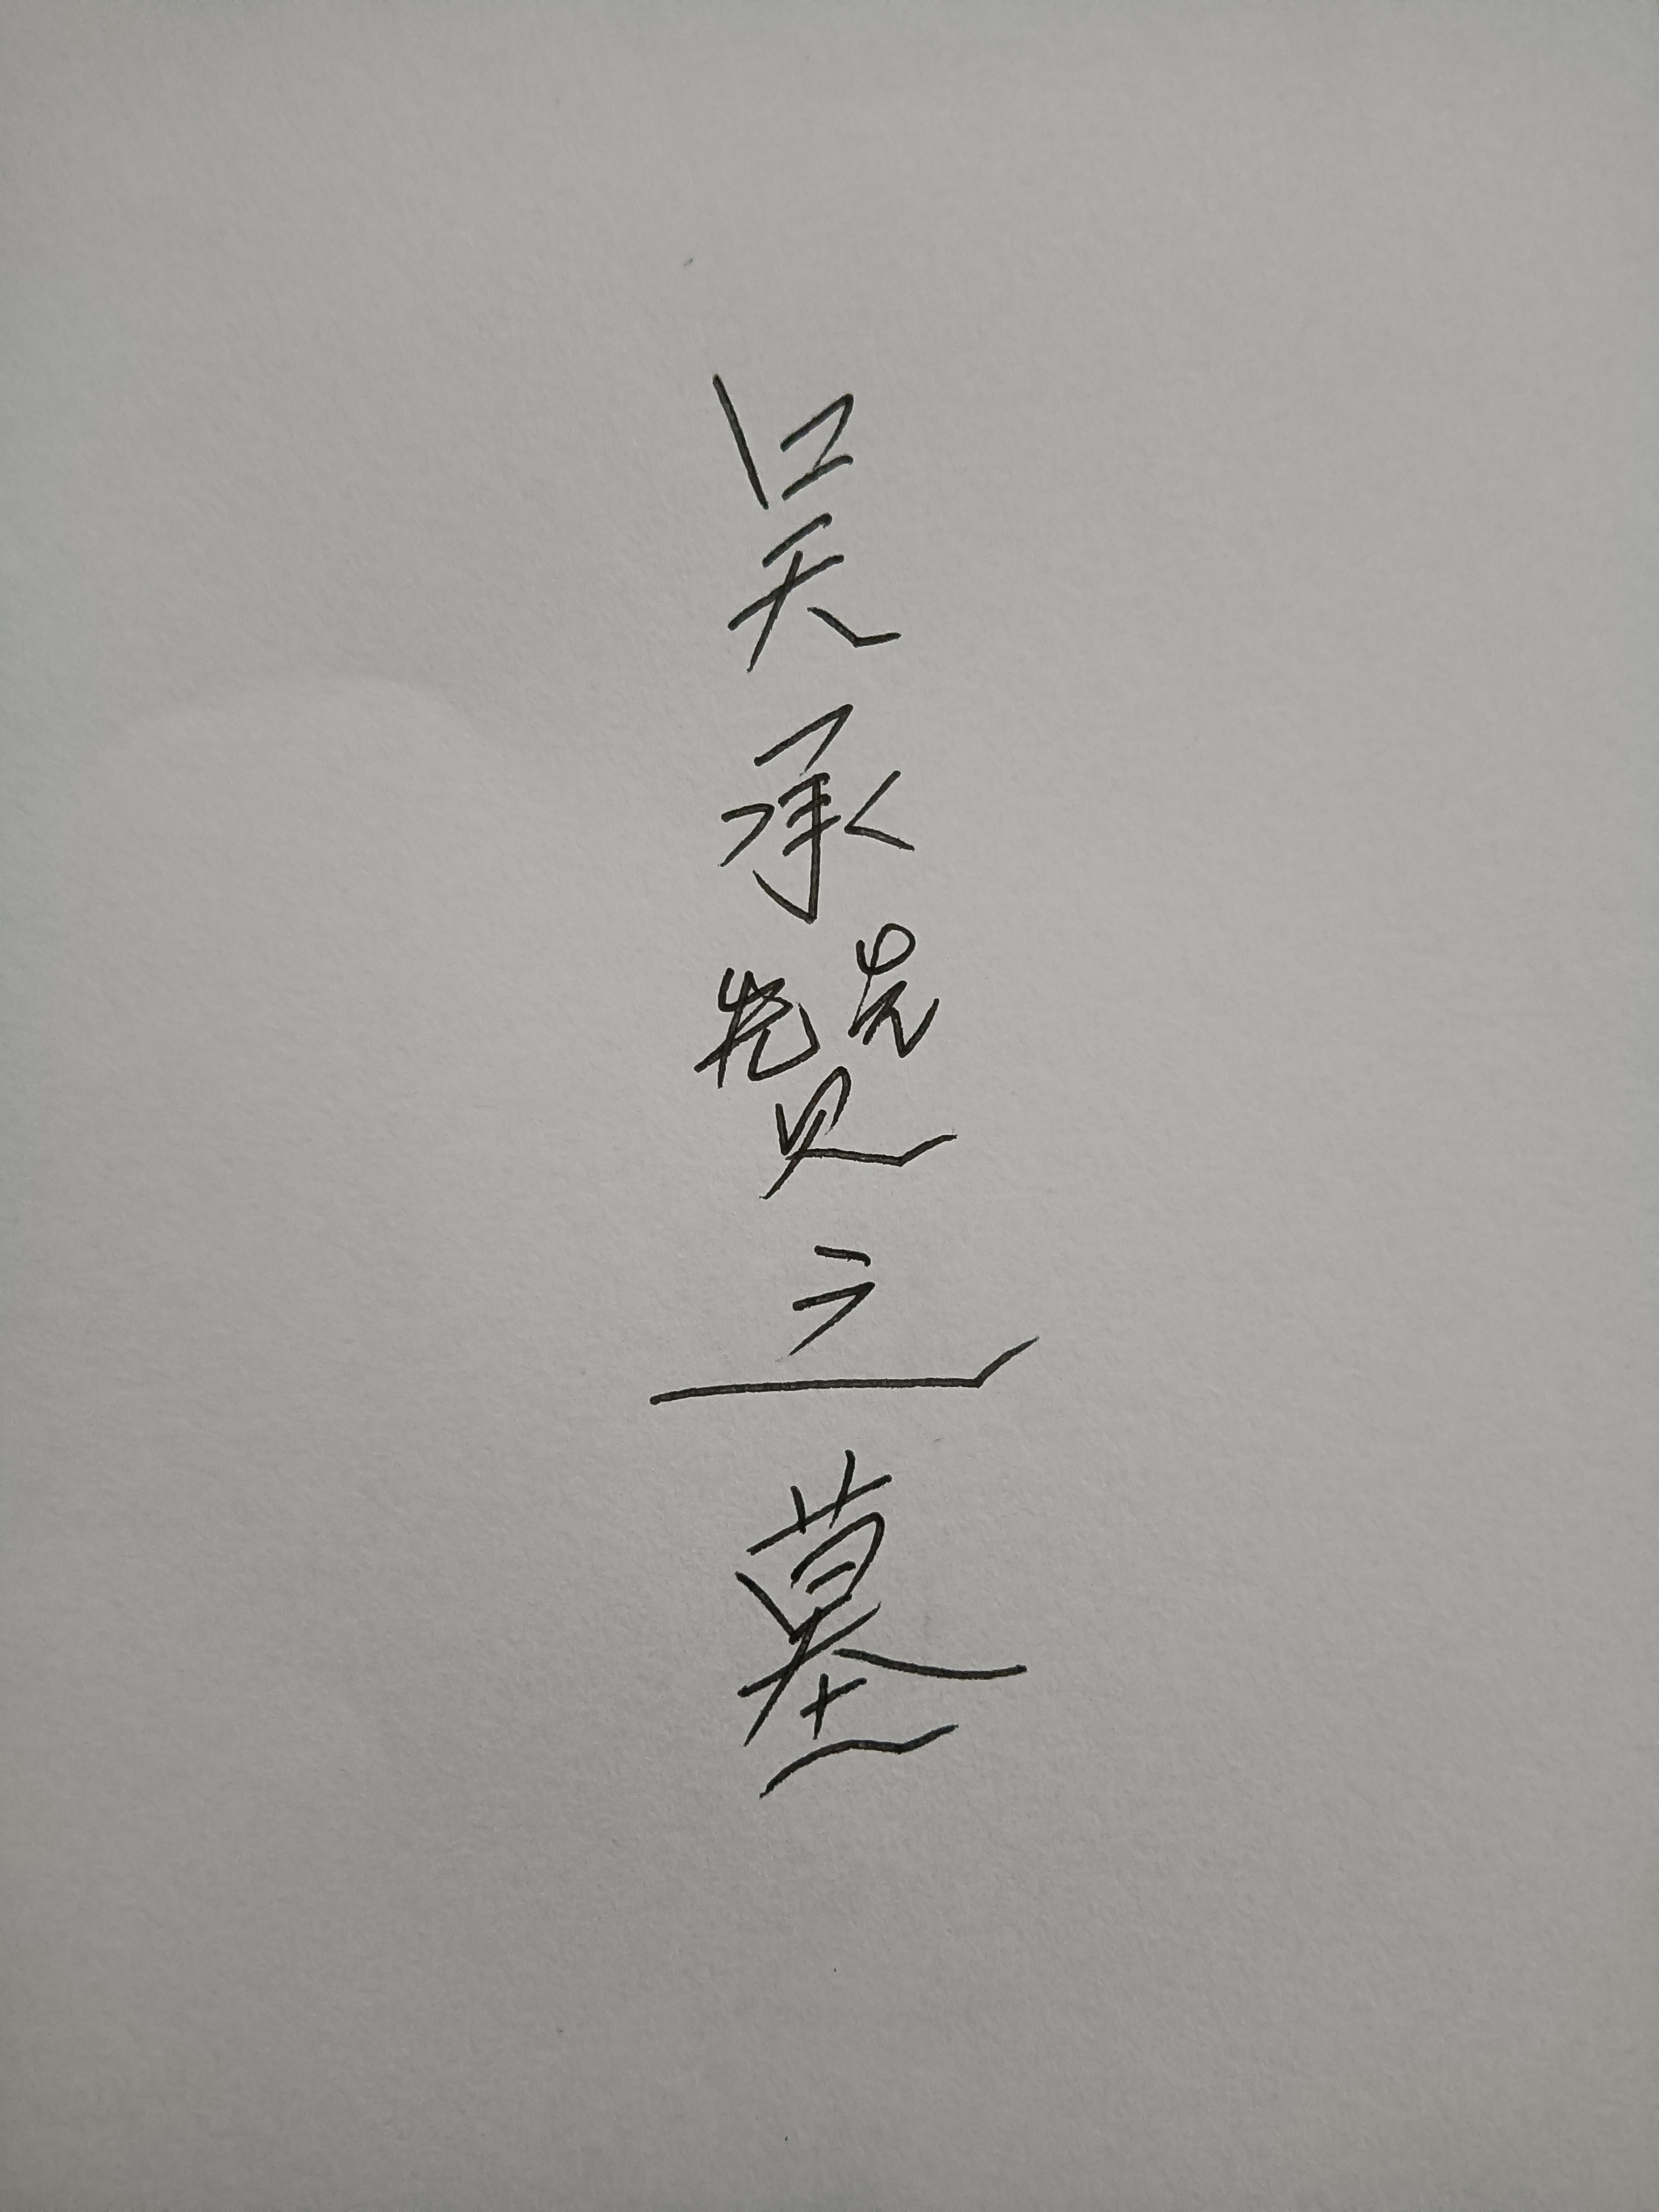 吴承赞之墓